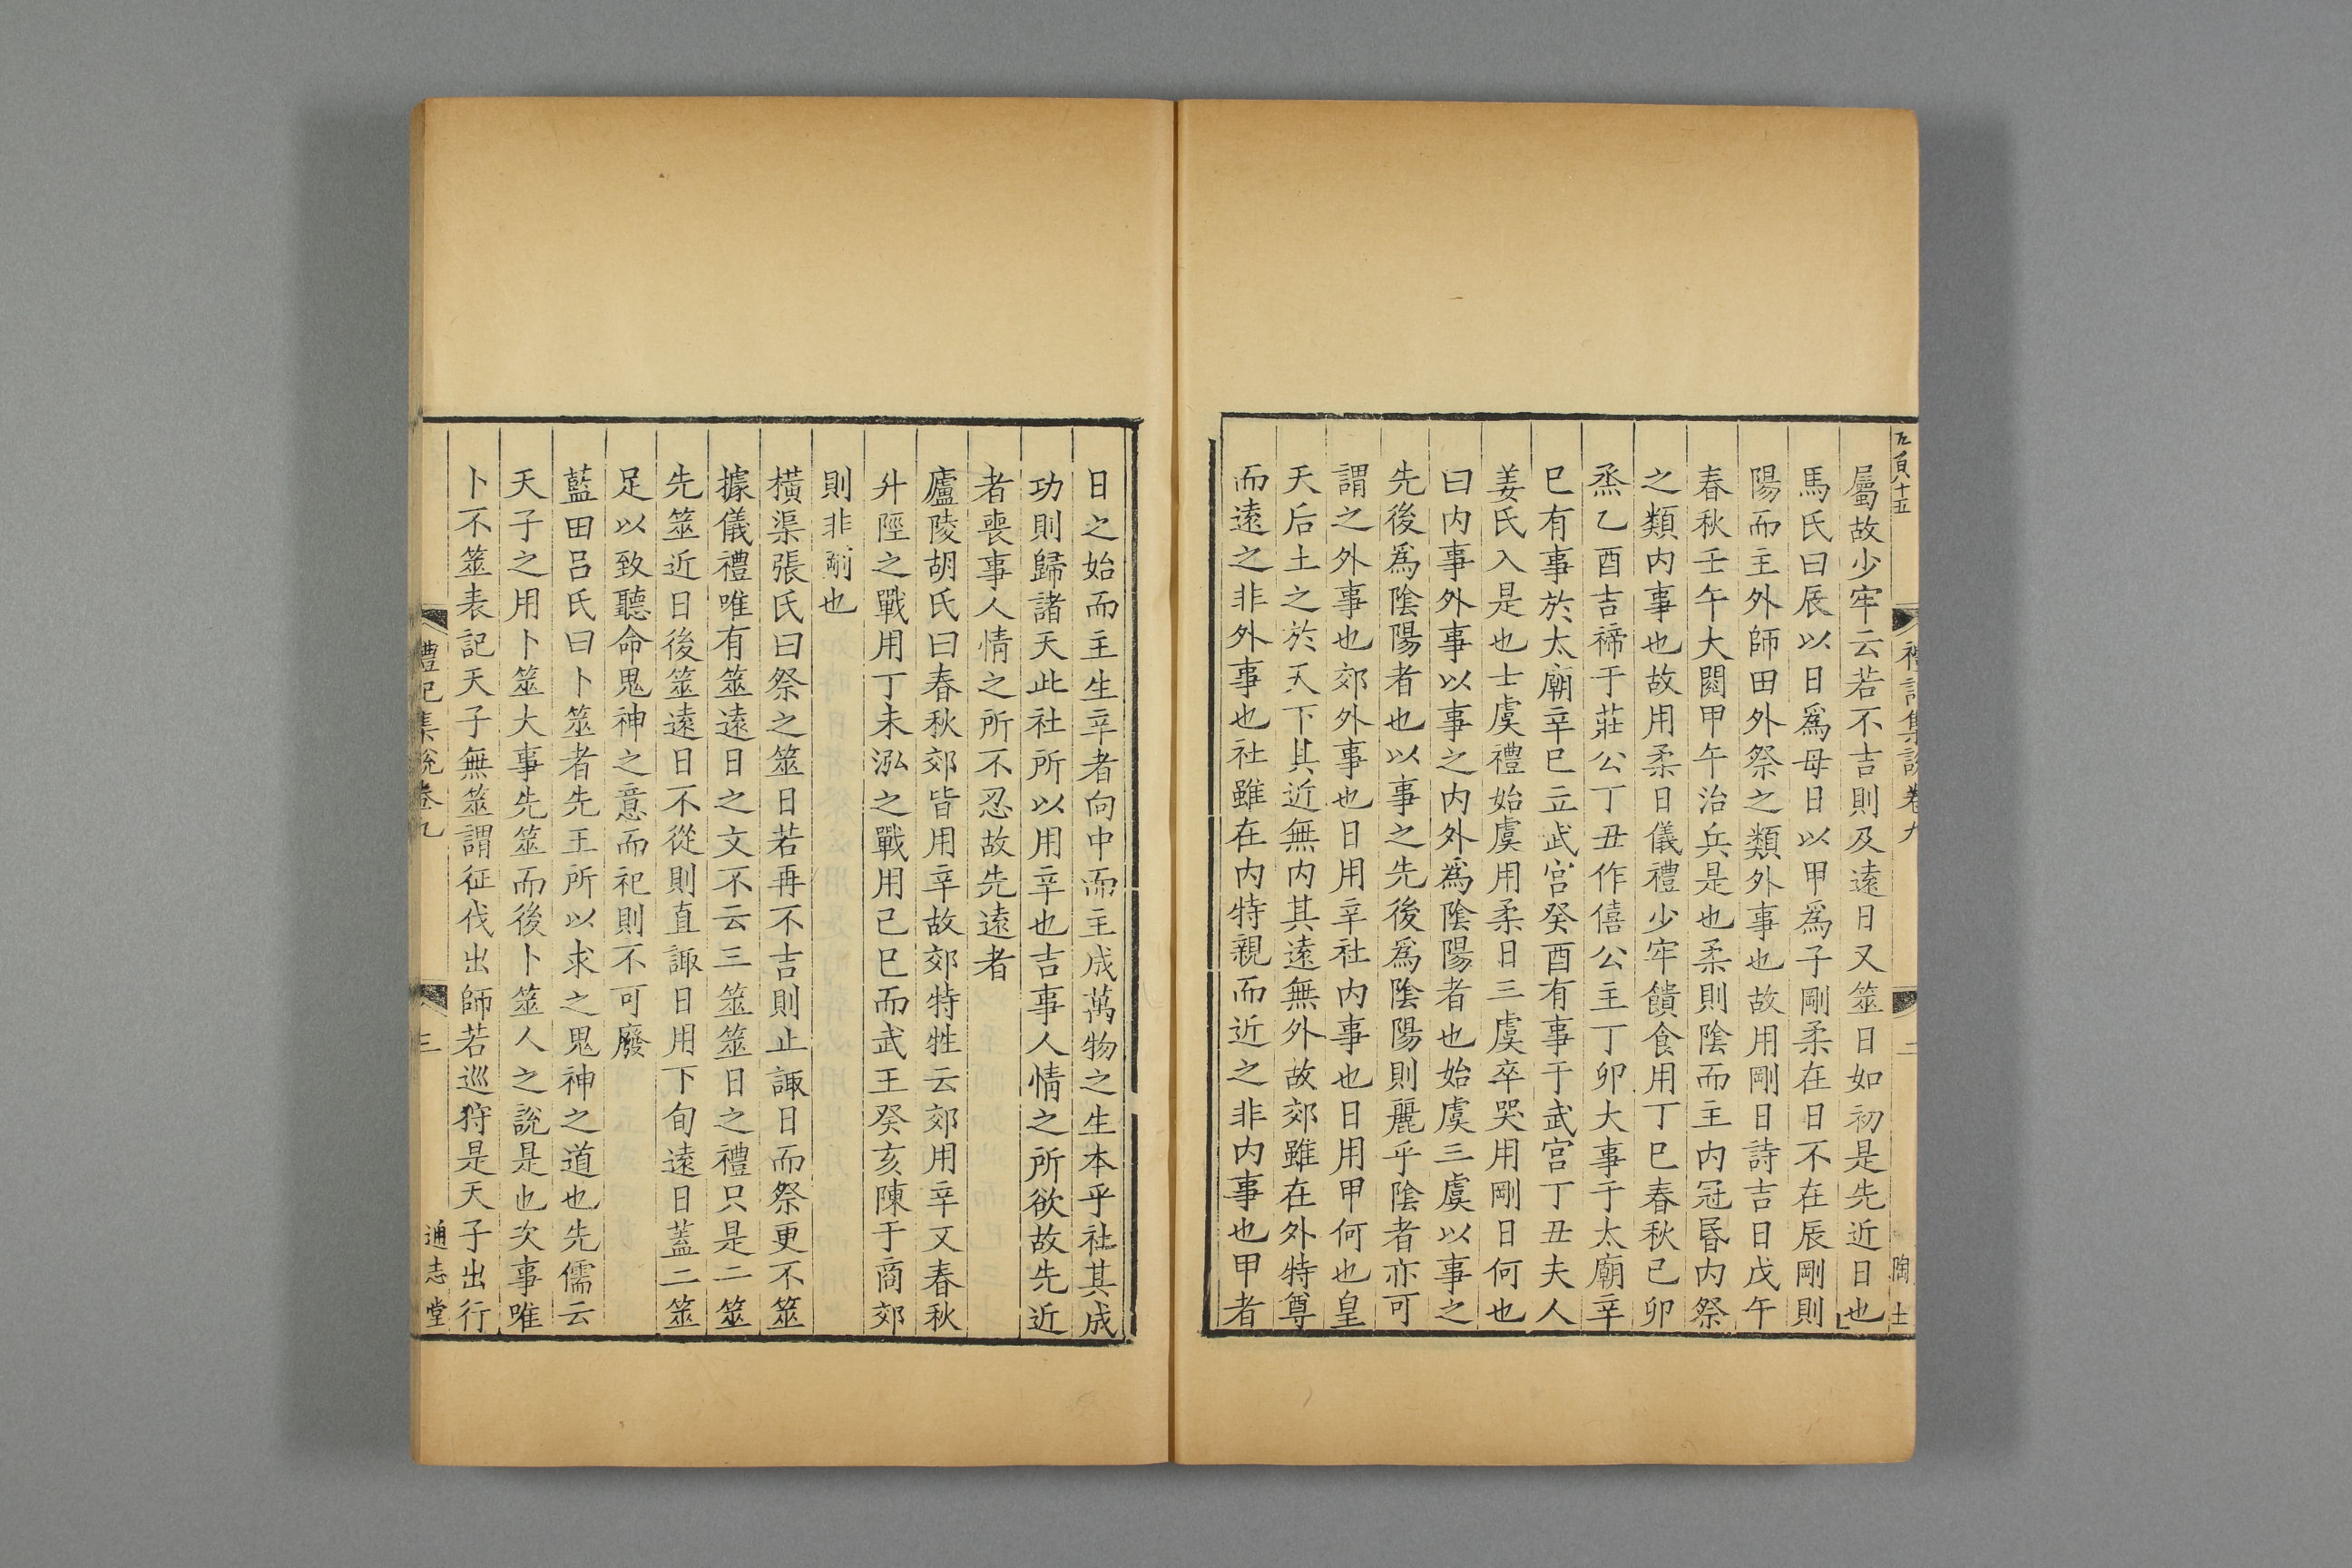 屬故少牢云若不吉則及遠日又筮日如初是先近日也
馬氏曰辰以日爲母日以甲爲子剛柔在日不在辰剛則
陽而主外師田外祭之類外事也故用剛日詩吉日戊午
春秋壬午大閱甲午治兵是也柔則陰而主内冠昬内祭
之類内事也故用柔日儀禮少牢饋食用丁巳春秋己卯
烝乙酉吉禘于莊公丁丑作僖公主丁卯大事于太廟辛
巳有事於太廟辛巳立武宫癸酉有事于武宫丁丑夫人
姜氏入是也士虞禮始虞用柔日三虞卒哭用剛日何也
曰内事外事以事之内外爲陰陽者也始虞三虞以事之
先後爲陰陽者也以事之先後爲陰陽則麗乎陰者亦可
謂之外事也郊外事也日用辛社内事也日用甲何也皇
天后土之於天下其近無内其遠無外故郊雖在外特尊
而遠之非外事也社雖在内特親而近之非内事也甲者
日之始而主生辛者向中而主成萬物之生本乎社其成
功則歸諸天此社所以用辛也吉事人情之所欲故先近
者喪事人情之所不忍故先遠者
廬陵胡氏曰春秋郊皆用辛故郊特牲云郊用辛又春秋
升陘之戰用丁未泓之戰用己巳而武王癸亥陳于商郊
則非剛也
橫渠張氏曰祭之筮日若再不吉則止諏日而祭更不筮
據儀禮唯有筮遠日之文不云三筮筮日之禮只是二筮
先筮近日後筮遠日不從則直諏日用下旬遠日蓋二筮
足以致聽命鬼神之意而祀則不可廢
藍田呂氏曰卜筮者先王所以求之鬼神之道也先儒云
天子之用卜筮大事先筮而後卜筮人之說是也次事唯
卜不筮表記天子無筮謂征伐出師若巡狩是天子出行
禮記集說卷九
三
通志堂